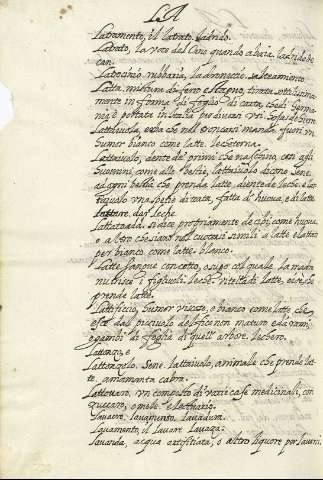 LA
Latramento, il latrato. Ladrido.
Latrato, la voce del Cane quando abaia. ladrido de
can.
Latrocinio, rubbaria, ladronecio. salteamiento
Latta, mistura di ferro e stagno, tirata sottilissima
mente in forma di foglio di carta, che di Germa
nia è portata in Italia per diversi usi. hoja de
Lattaiuola, erba che nel troncarsi manda fuori un
humor bianco come latte. lecheterna.
Lattaiuolo, dente de' primi che nascono, così agli
huomini, come alle bestie, lattaiuola dicono Sene.
ad ogni bestia che prenda latte, diente de leche. e lat
tiquolo una spetie di torta, fatta di huova, e di latte
lattare. dar leche.
Lattata, si dice propriamente de cibi, come huova
o altro che siano nel cuocersi simili a latte e latton
per bianco come latte. blanco.
Latte sangue concotto, o sugo col quale la madre
nutrisce i figliuoli. leche. vitella di latte, che
prende latte.
Lattificcio, humor viscoso, e bianco come latte che
esce dal picciuolo del fico non maturo e da rami
e gambi di foglie di quell' arbore. lechero.
Lattonzo, e
Lattonzolo. Sene. lattaiuolo, animale che prende lat
te. amamanta cabra.
Lattovaro, un composto di varie cose medicinali, con
zuccaro, o mele. eletuario.
Lavacro, lavamento, lavadura.
Lavamento, il lavare. lavaza.
Lavanda, acqua artifitiata, o altro liquore per lavarsi.